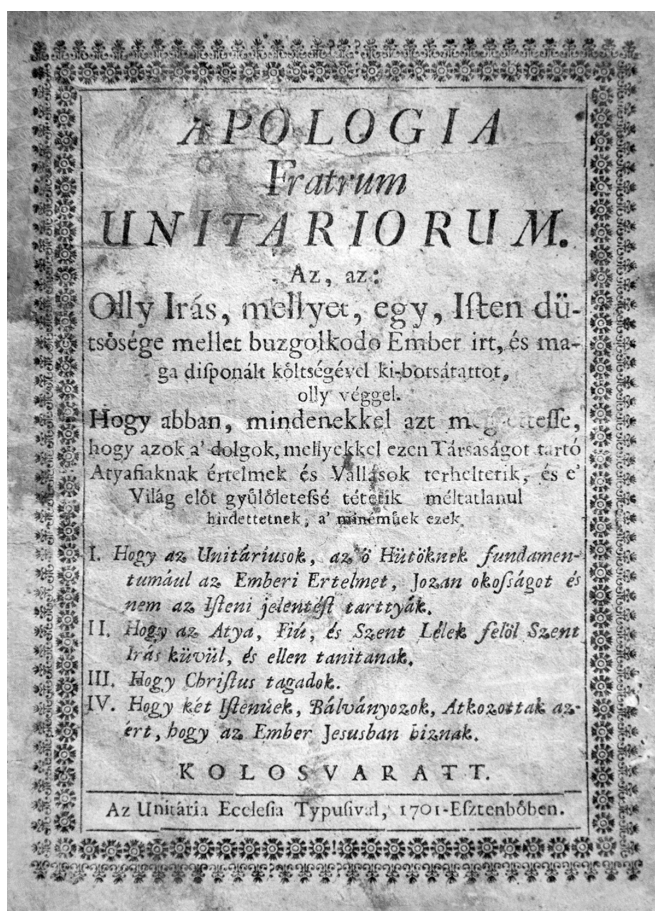 APOLOGIA
Fratrum
UNITARIORUM.
Az, az:
Olly Irás, mellyet, egy, Iſten dü-
tsösége mellet buzgolkodo Ember irt, és ma-
ga diſponált költségével ki-botsátattot,
olly véggel.
Hogy abban, mindenekkel azt
hogy azok a' dolgok, mellyekkel ezen Társaságot tartó
Atyafiaknak értelmek és Vallások terheltetik, és e'
Világ elöt gyülöletesſé tétetik méltatlanul
hirdettetnek, a' minémüek ezek
I. Hogy az Unitáriusok, az ö Hütöknek fundamen-
tumául az Emberi Ertelmet, Jozan okoſságot és
nem az Iſteni jelentéſt tarttyák.
II. Hogy az Atya, Fiú, és Szent Lélek felöl Szent
Irás küvül, és ellen tanitanak.
III. Hogy Chriſtus tagadok.
IV. Hogy két Iſtenüek, Bálványozok, Atkozottak az-
ért, hogy az Ember Jesusban biznak.
KOLOSVARATT.
Az Unitária Ecclesia Typusival, 1701-Eſztenböben.